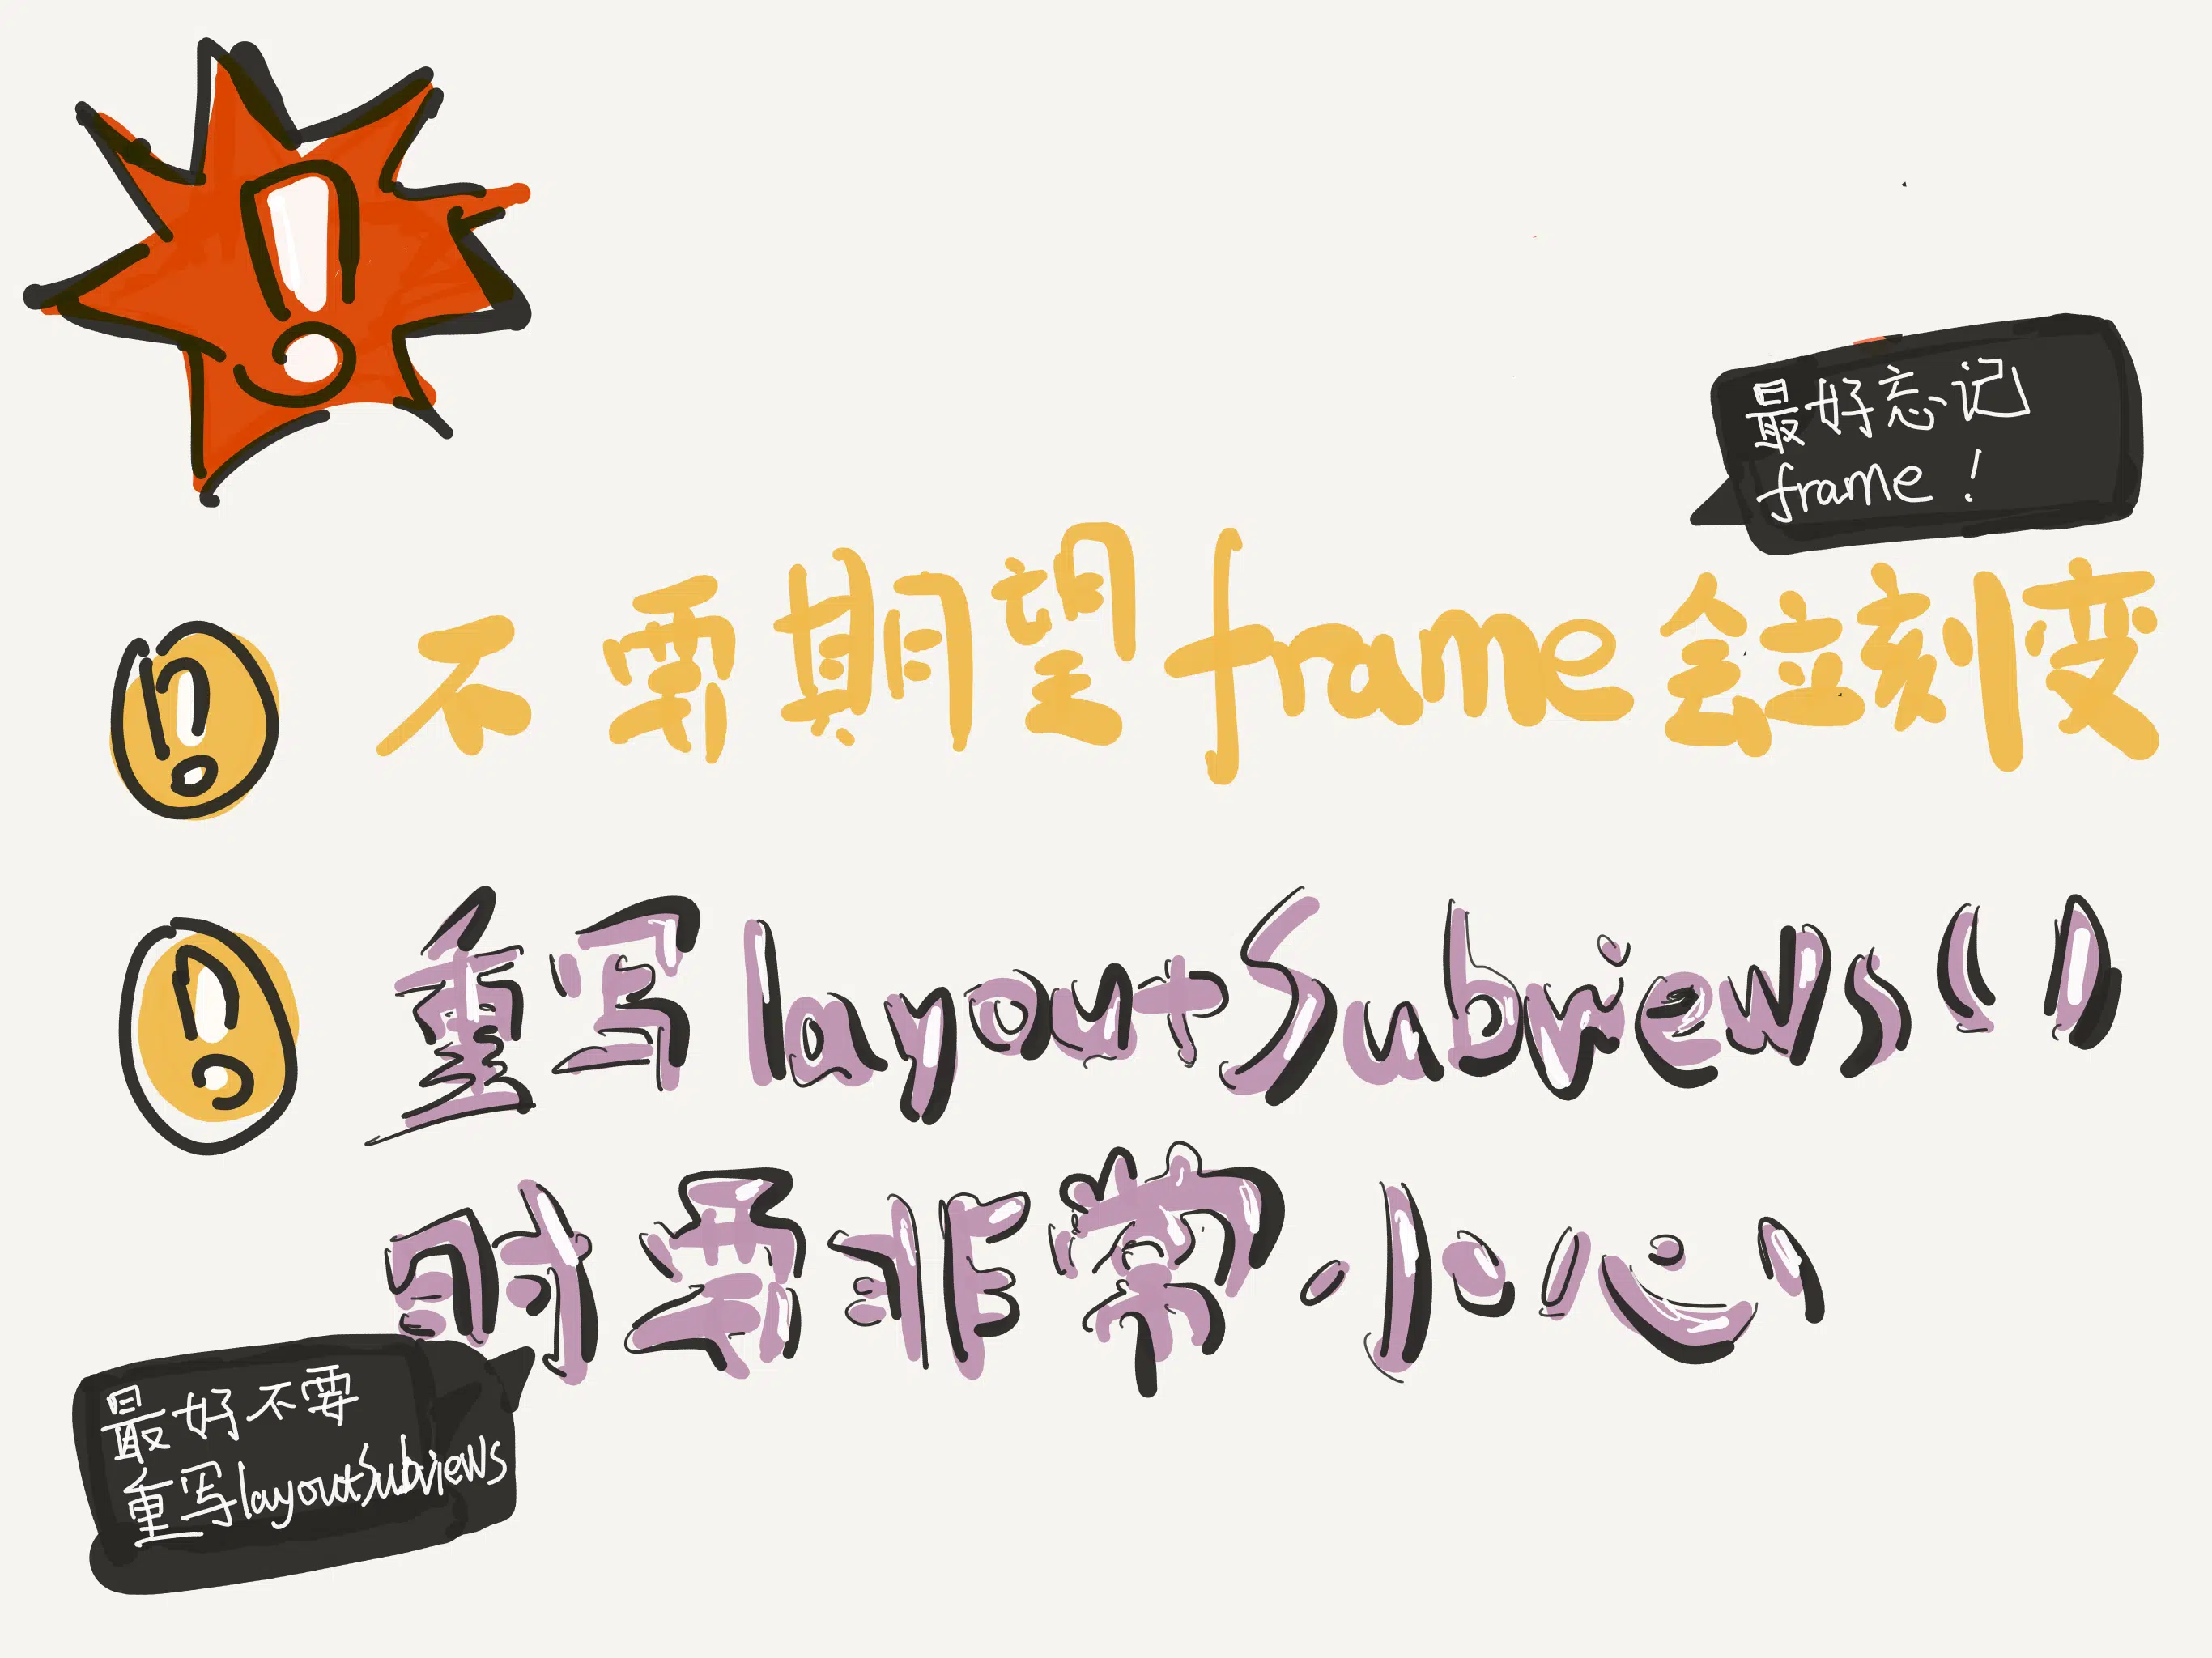 最好忘记
frame！
不需期望frame会立刻变
重写layoutSubviews()
时需非常小心
最好不要
重写layoutSubviews